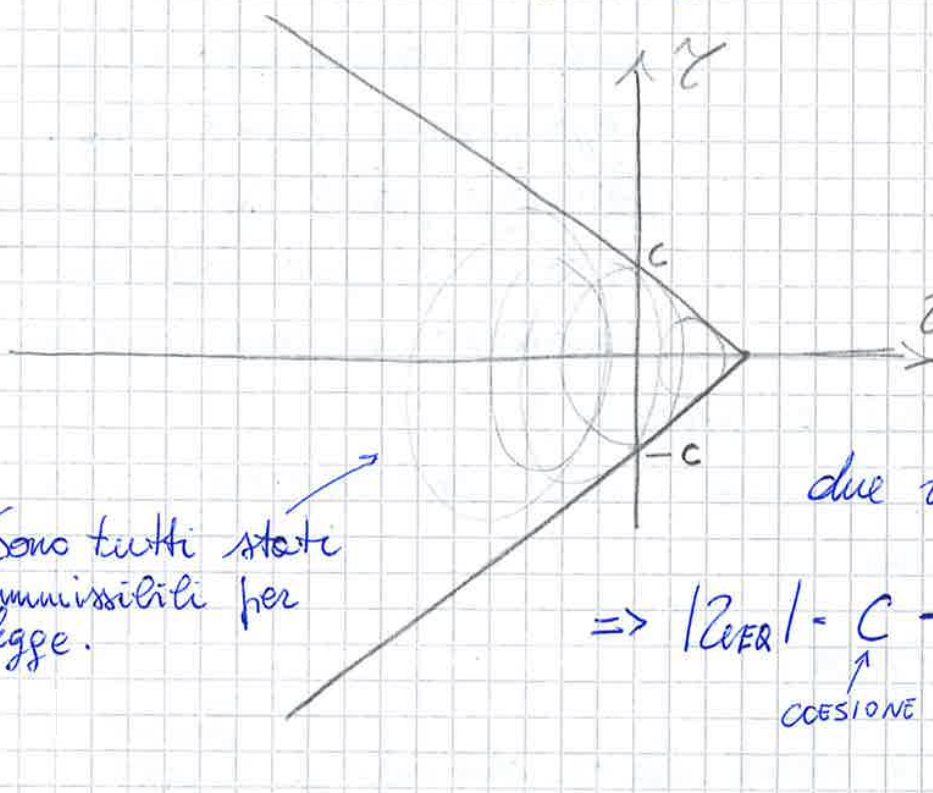 τ
c
-c
due
Sono tutti stati
ammissibili per
legge.
=> |τ_EQ| = C -
COESIONE